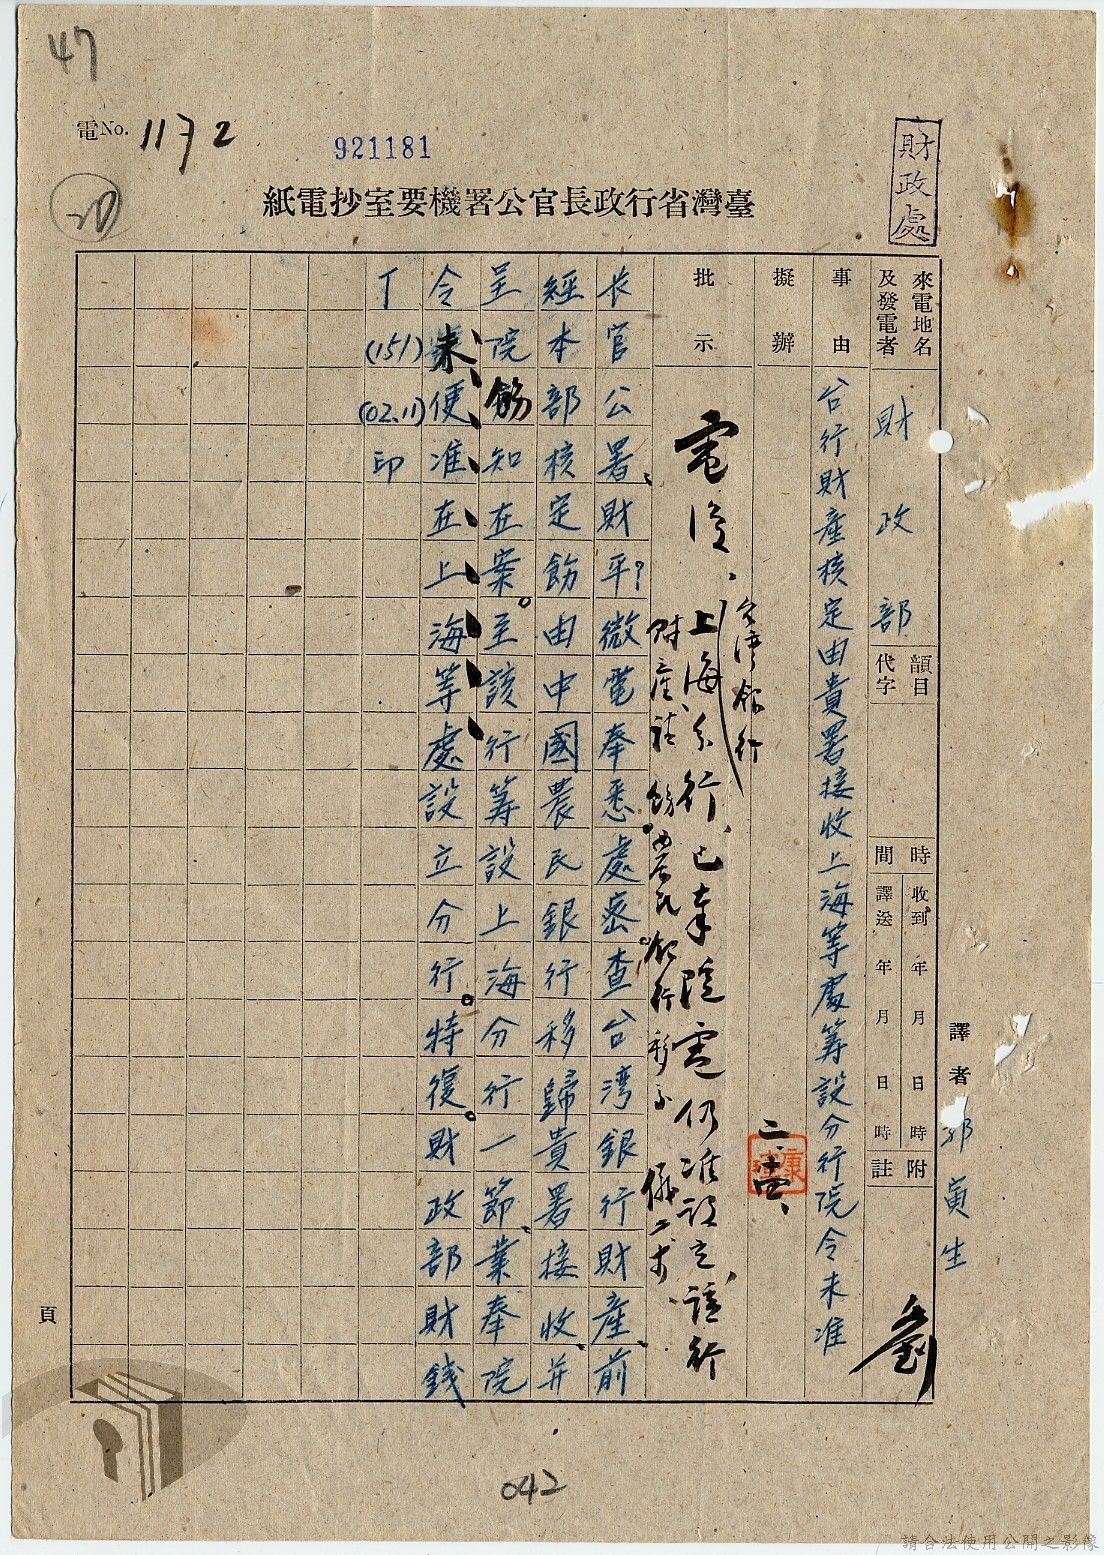 47
電No. 1172
921181
20
財政處
臺灣省行政長官公署機要室抄電紙
來電地名及發電者
財政部
韻目代字
時間
收到 年 月 日 時
譯送 年 月 日 時
附註
譯者
郭寅生
劉
事由
台行財產核定由貴署接收上海等處籌設分行院令未准
擬辦
批示
台灣銀行
電復、上海分行、已奉院電仍准設立該行
財產請飭農民銀行移交 儀二、十四
長官公署、財平?微電奉悉處密查台湾銀行財產、前
經本部核定飭由中國農民銀行移歸貴署接收、并
呈院飭知在案。至該行籌設上海分行一節、業奉院
令未便准在上海等處設立分行。特復。財政部財錢
丁(151)(02.11)印
頁
042
請合法使用公開之影像